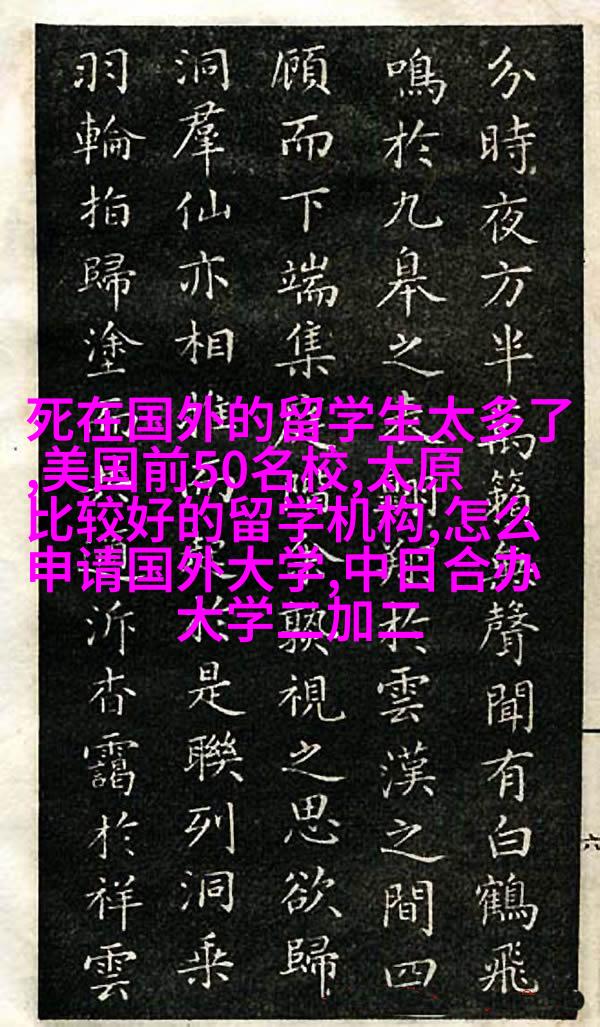 分時夜方半萬籟聲聞有白鶴飛
鳴於九皋之翔於雲漢之間四
顧而下端集視之思欲歸
洞羣仙亦相於是聯列洞乘
羽輪拍歸塗泝杳靄於祥雲
六
死在国外的留学生太多了
,美国前50名校,太原
比较好的留学机构,怎么
申请国外大学,中日合办
大学二加二